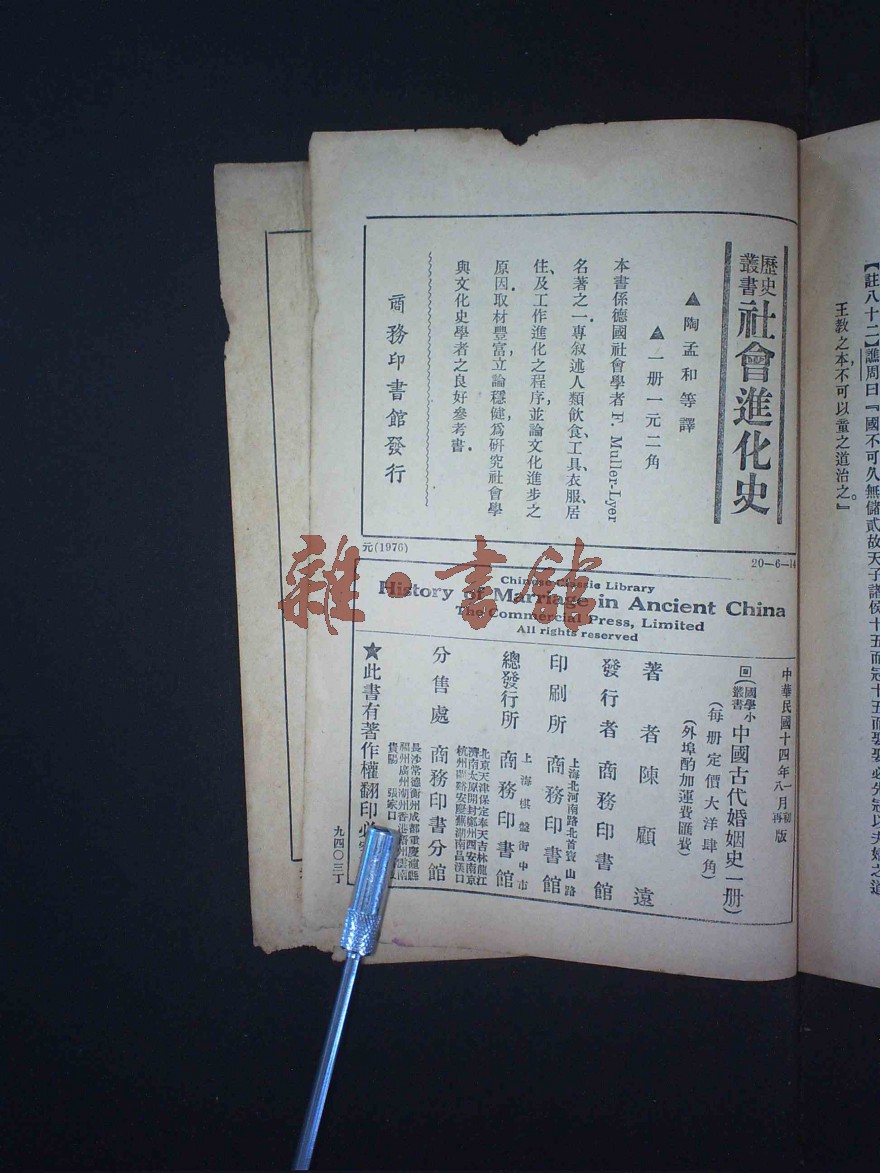 【註八十二】譙周曰『國不可久無儲貳故天子諸侯十五而冠十五而娶娶必先冠以夫婦之道
王教之本不可以童之道治之。』
歷史
叢書
社會進化史
▲陶孟和等譯
▲一册一元二角
本書係德國社會學者F. Muller-Lyer
名著之一專叙述人類飲食、工具、衣服、居
住、及工作進化之程序，並論文化進步之
原因．取材豐富，立論穩健，爲研究社會學
與文化史學者之良好參考書．
商務印書館發行
元(1976)
20—6—14
Chinese Classic Library
History of Marriage in Ancient China
The Commercial Press, Limited
All rights reserved
中華民國十四年
一月初
八月再
版
國學小
叢書
中國古代婚姻史一册)
(每册定價大洋肆角)
(外埠酌加運費匯費)
著者陳顧遠
發行者商務印書館
上海北河南路北首寶山路
印刷所商務印書館
上海棋盤街中市
總發行所商務印書館
北京天津保定奉天吉林龍江
濟南太原開封鄭州西安南京
杭州蘭谿安慶蕪湖南昌漢口
分售處商務印書分館
長沙常德衡州成都重慶瀘縣
福州廣州潮州香港梧州雲南
貴陽 張家口
★此書有著作權翻印必
九四〇三丁
雜·書館